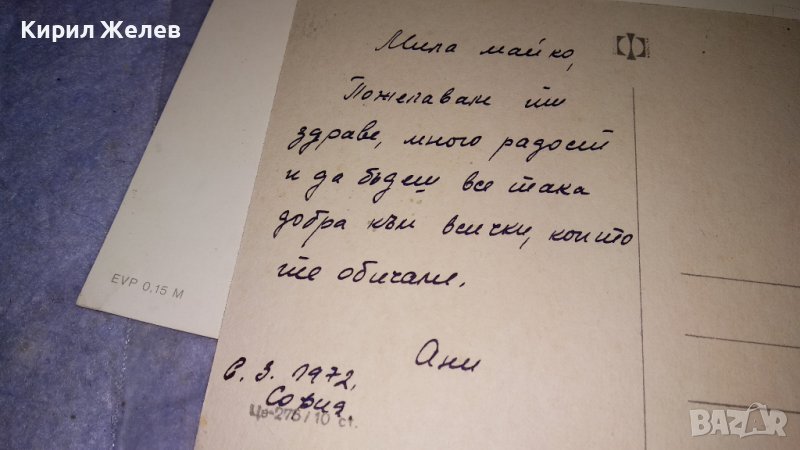 Кирил Желев
Мила майко,
Пожелавам ти
здраве, много радост
и да бъдеш все така
добра към всички, които
те обичаме.
Ани
6. 3. 1972,
София
Цв-276/10 ст.
EVP 0,15 M
BAZAR